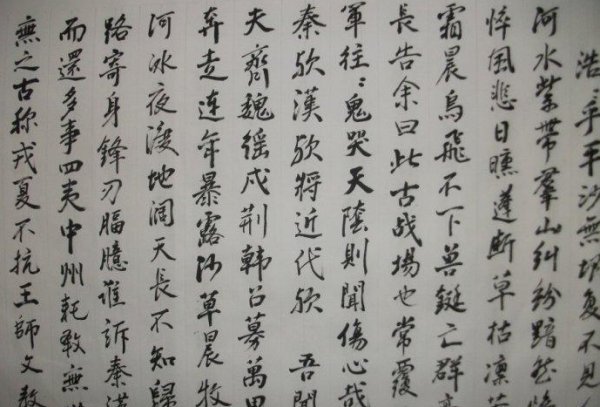 浩〻乎平沙無垠夐不見
河水縈帶羣山糾紛黯然
悴風悲日曛蓬斷草枯凜
霜晨鳥飛不下兽鋌亡群
長告余曰此古战場也常覆
軍往〻鬼哭天陰則聞傷心哉
秦欤漢欤將近代欤 吾聞
夫齊魏徭戍荆韓召募萬里
奔走連年暴露沙草晨牧
河冰夜渡地闊天長不知歸
路寄身鋒刃腷臆誰訴秦漢
而還多事四夷中州耗斁無
無之古称戎夏不抗王師文教